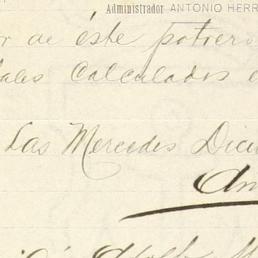 Administrador ANTONIO HERR
r de éste potrero
ales Calculados
Las Mercedes Dici
An